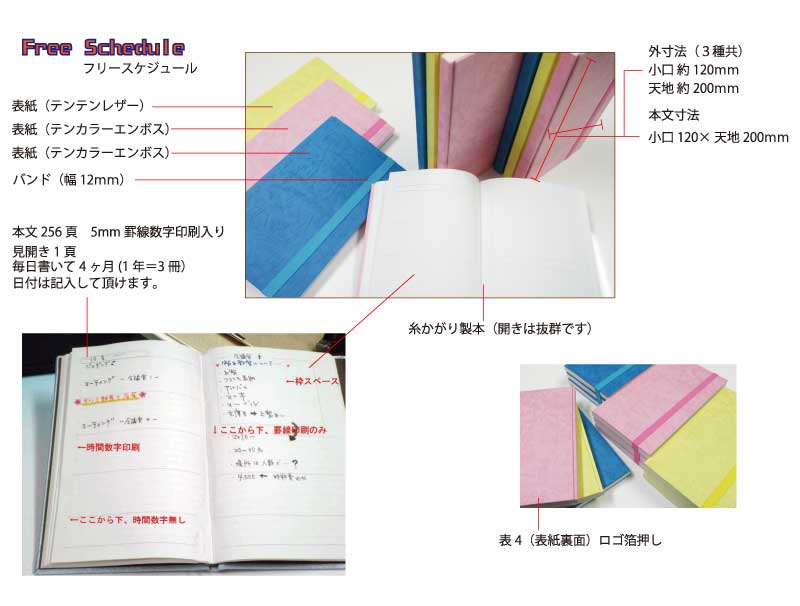 Free Schedule
フリースケジュール
表紙（テンテンレザー）
表紙（テンカラーエンボス）
表紙（テンカラーエンボス）
バンド（幅 12mm）
本文 256 頁　5mm 罫線数字印刷入り
見開き 1 頁
毎日書いて 4 ヶ月 (1 年＝3 冊)
日付は記入して頂けます。
外寸法（３種共）
小口 約 120mm
天地 約 200mm
本文寸法
小口 120× 天地 200mm
糸かがり製本（開きは抜群です）
←枠スペース
↓ここから下、罫線印刷のみ
←時間数字印刷
←ここから下、時間数字無し
表 4（表紙裏面）ロゴ箔押し